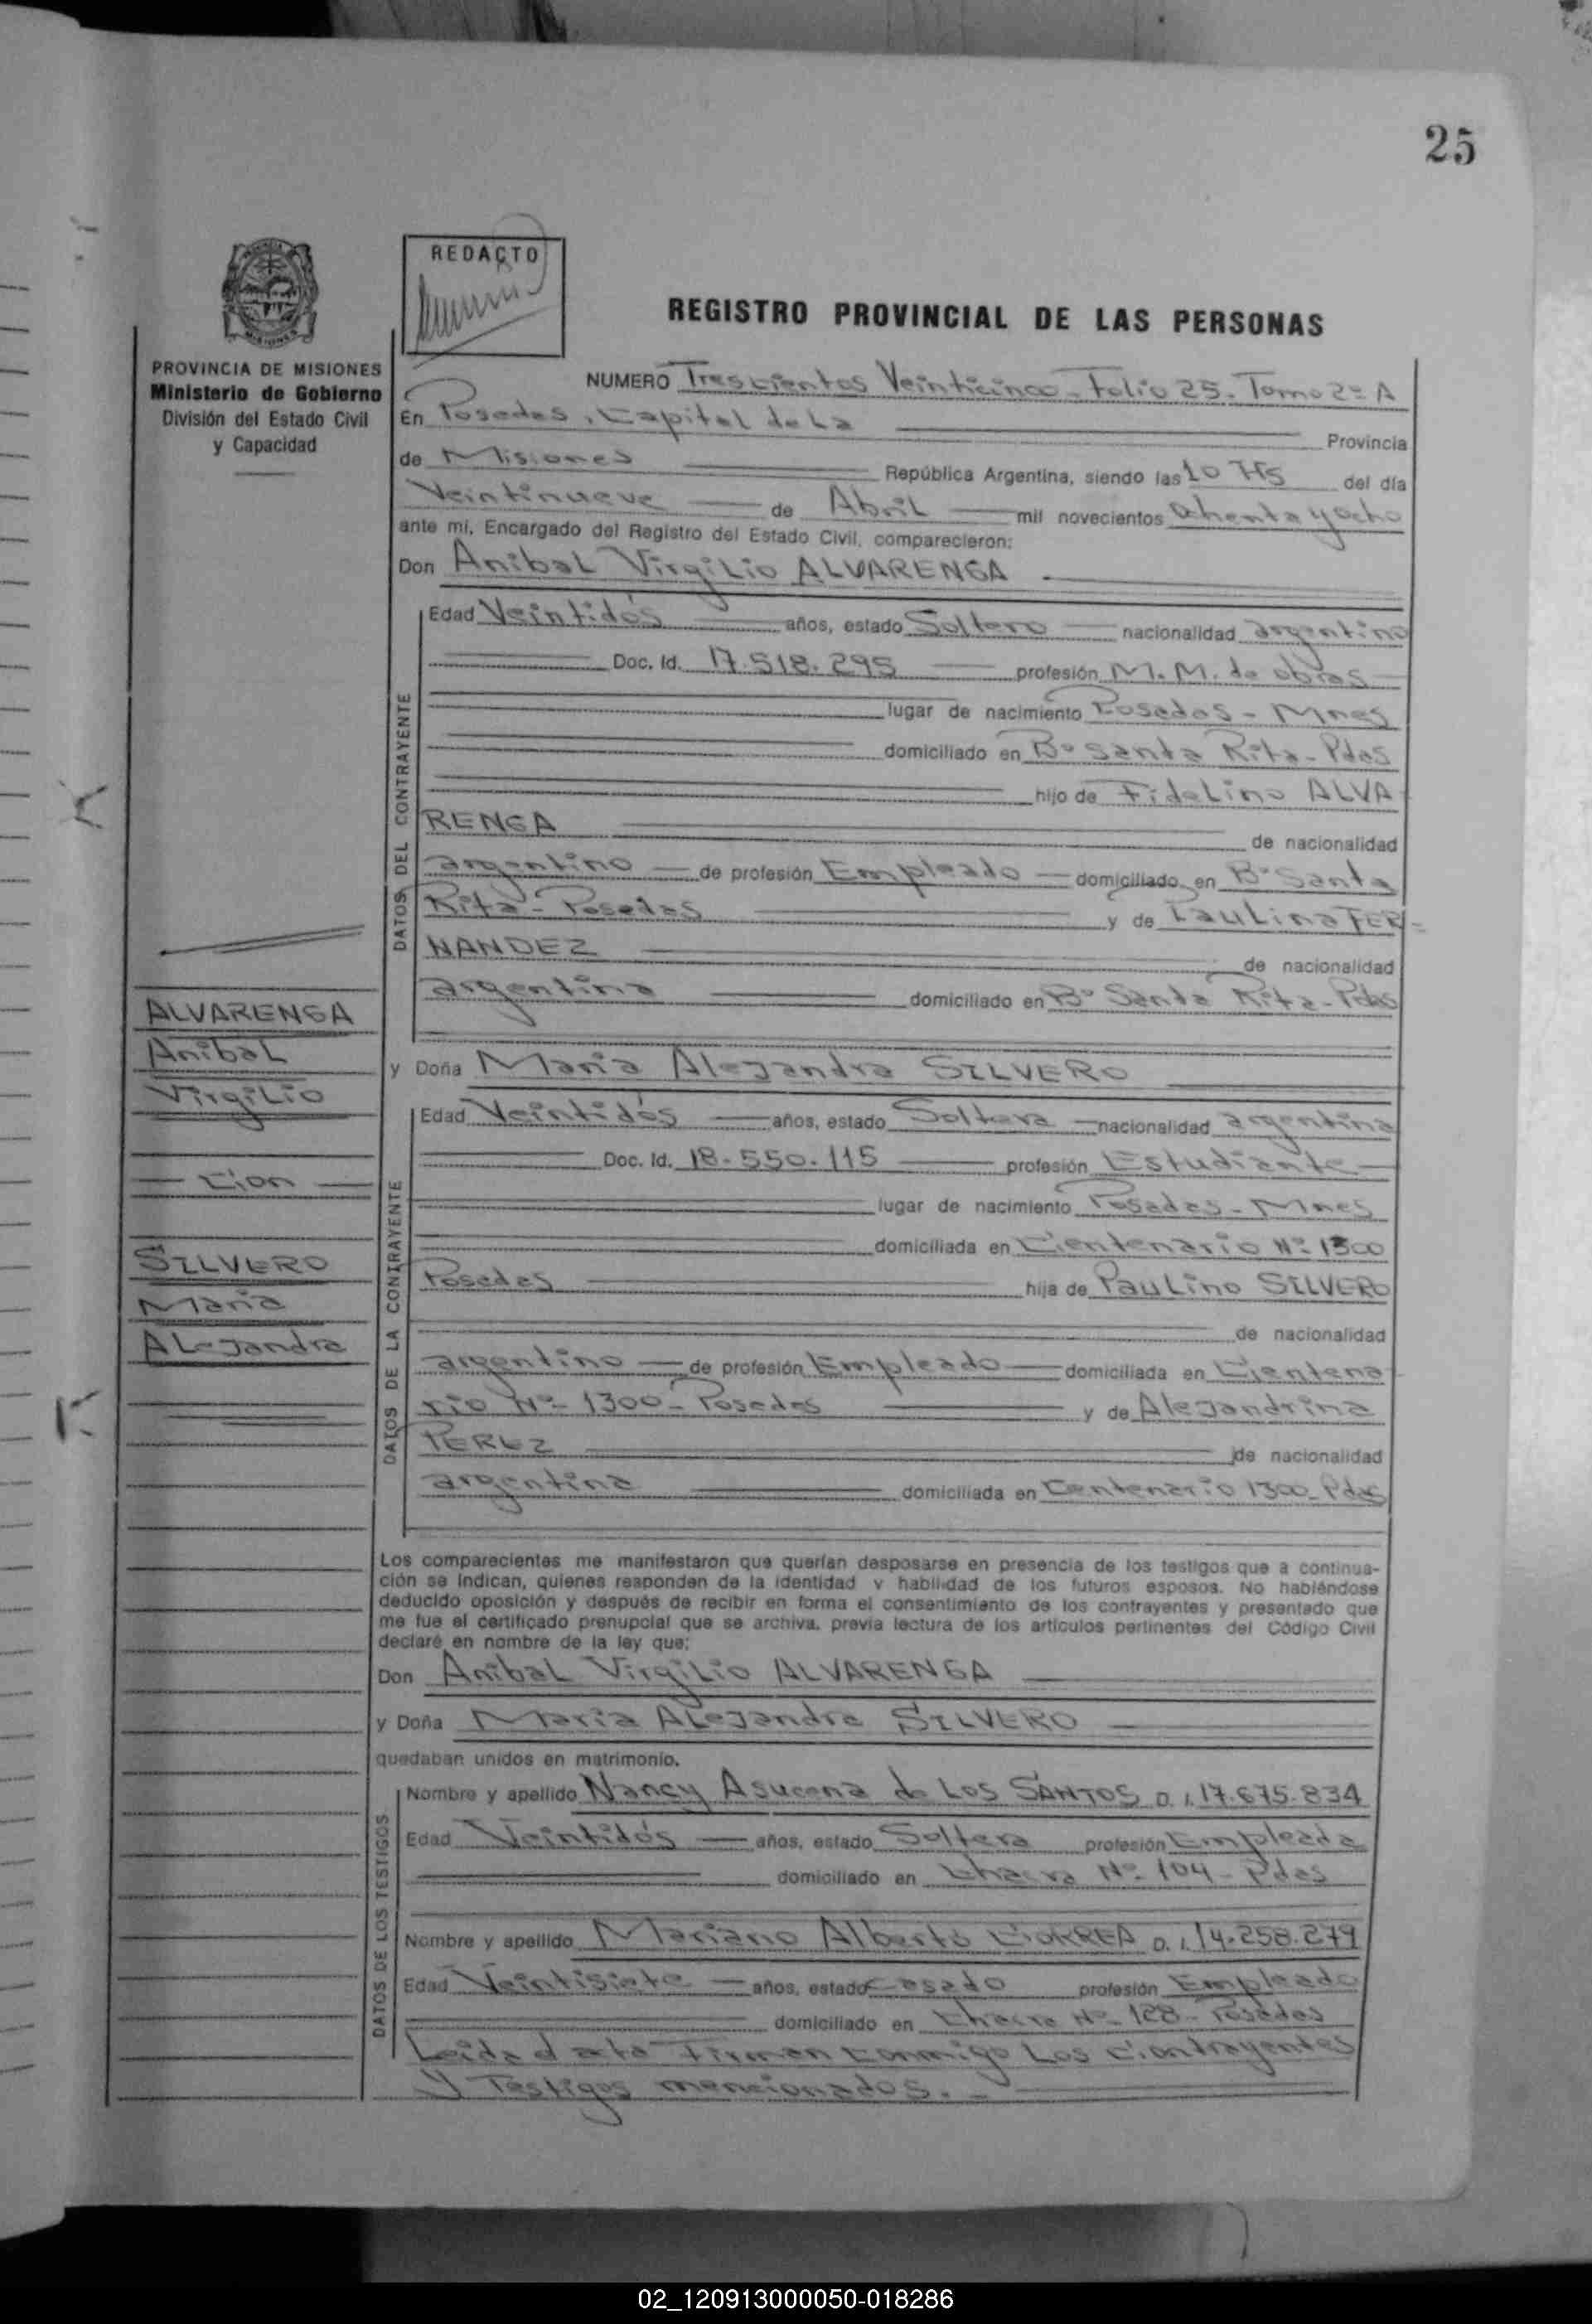 25
REDACTO
REGISTRO PROVINCIAL DE LAS PERSONAS
PROVINCIA DE MISIONES
Ministerio de Gobierno
División del Estado Civil
y Capacidad
NUMERO Trescientos Veinticinco - Folio 25. Tomo 2º A
En Posadas, Capital de La Provincia
de Misiones República Argentina, siendo las 10 Hs del día
Veintinueve de Abril mil novecientos ochenta y ocho
ante mí, Encargado del Registro del Estado Civil, comparecieron:
Don Anibal Virgilio ALVARENGA
DATOS DEL CONTRAYENTE
Edad Veintidós años, estado Soltero nacionalidad argentino
Doc. Id. 17.518.295 profesión M.M. de obras
lugar de nacimiento Posadas - Mnes
domiciliado en Bº Santa Rita - Pdas
hijo de Fidelino ALVA
RENGA de nacionalidad
argentino de profesión Empleado domiciliado en Bº Santa
Rita - Posadas y de Paulina FER-
NANDEZ de nacionalidad
argentina domiciliado en Bº Santa Rita - Pdas
ALVARENGA
Anibal
Virgilio
Con
SILVERO
Maria
Alejandra
y Doña Maria Alejandra SILVERO
DATOS DE LA CONTRAYENTE
Edad Veintidós años, estado Soltera nacionalidad argentina
Doc. Id. 18.550.115 profesión Estudiante
lugar de nacimiento Posadas - Mnes
domiciliada en Centenario Nº 1300
Posadas hija de Paulino SILVERO
de nacionalidad
argentino de profesión Empleado domiciliada en Centena
rio Nº 1300 - Posadas y de Alejandrina
PEREZ de nacionalidad
argentina domiciliada en Centenario 1300 - Pdas
Los comparecientes me manifestaron que querían desposarse en presencia de los testigos que a continua-
ción se indican, quienes responden de la identidad y habilidad de los futuros esposos. No habiéndose
deducido oposición y después de recibir en forma el consentimiento de los contrayentes y presentado que
me fue el certificado prenupcial que se archiva, previa lectura de los artículos pertinentes del Código Civil
declaré en nombre de la ley que:
Don Anibal Virgilio ALVARENGA
y Doña Maria Alejandra SILVERO
quedaban unidos en matrimonio.
DATOS DE LOS TESTIGOS
Nombre y apellido Nancy Asucena de Los SANTOS D.I. 17.675.834
Edad Veintidós años, estado Soltera profesión Empleada
domiciliado en Chacra Nº 104 - Pdas
Nombre y apellido Mariano Alberto CORREA D.I. 14.258.279
Edad Veintisiete años, estado casado profesión Empleado
domiciliado en Chacra Nº 128 - Posadas
Leida el acta Firman conmigo Los Contrayentes
y Testigos mencionados.-
02_120913000050-018286